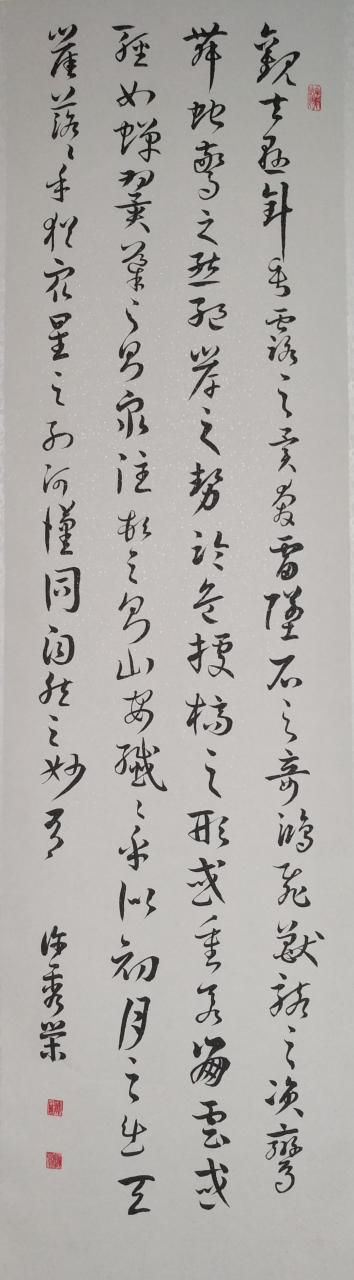 觀夫懸針垂露之異奔雷墜石之奇鴻飛獸駭之資鸞
舞蛇驚之態絕岸之勢臨危據槁之形或重若崩雲或
輕如蟬翼導之則泉注頓之則山安纖纖乎似初月之出天
崖落落乎猶衆星之列河漢同自然之妙有
許秀榮